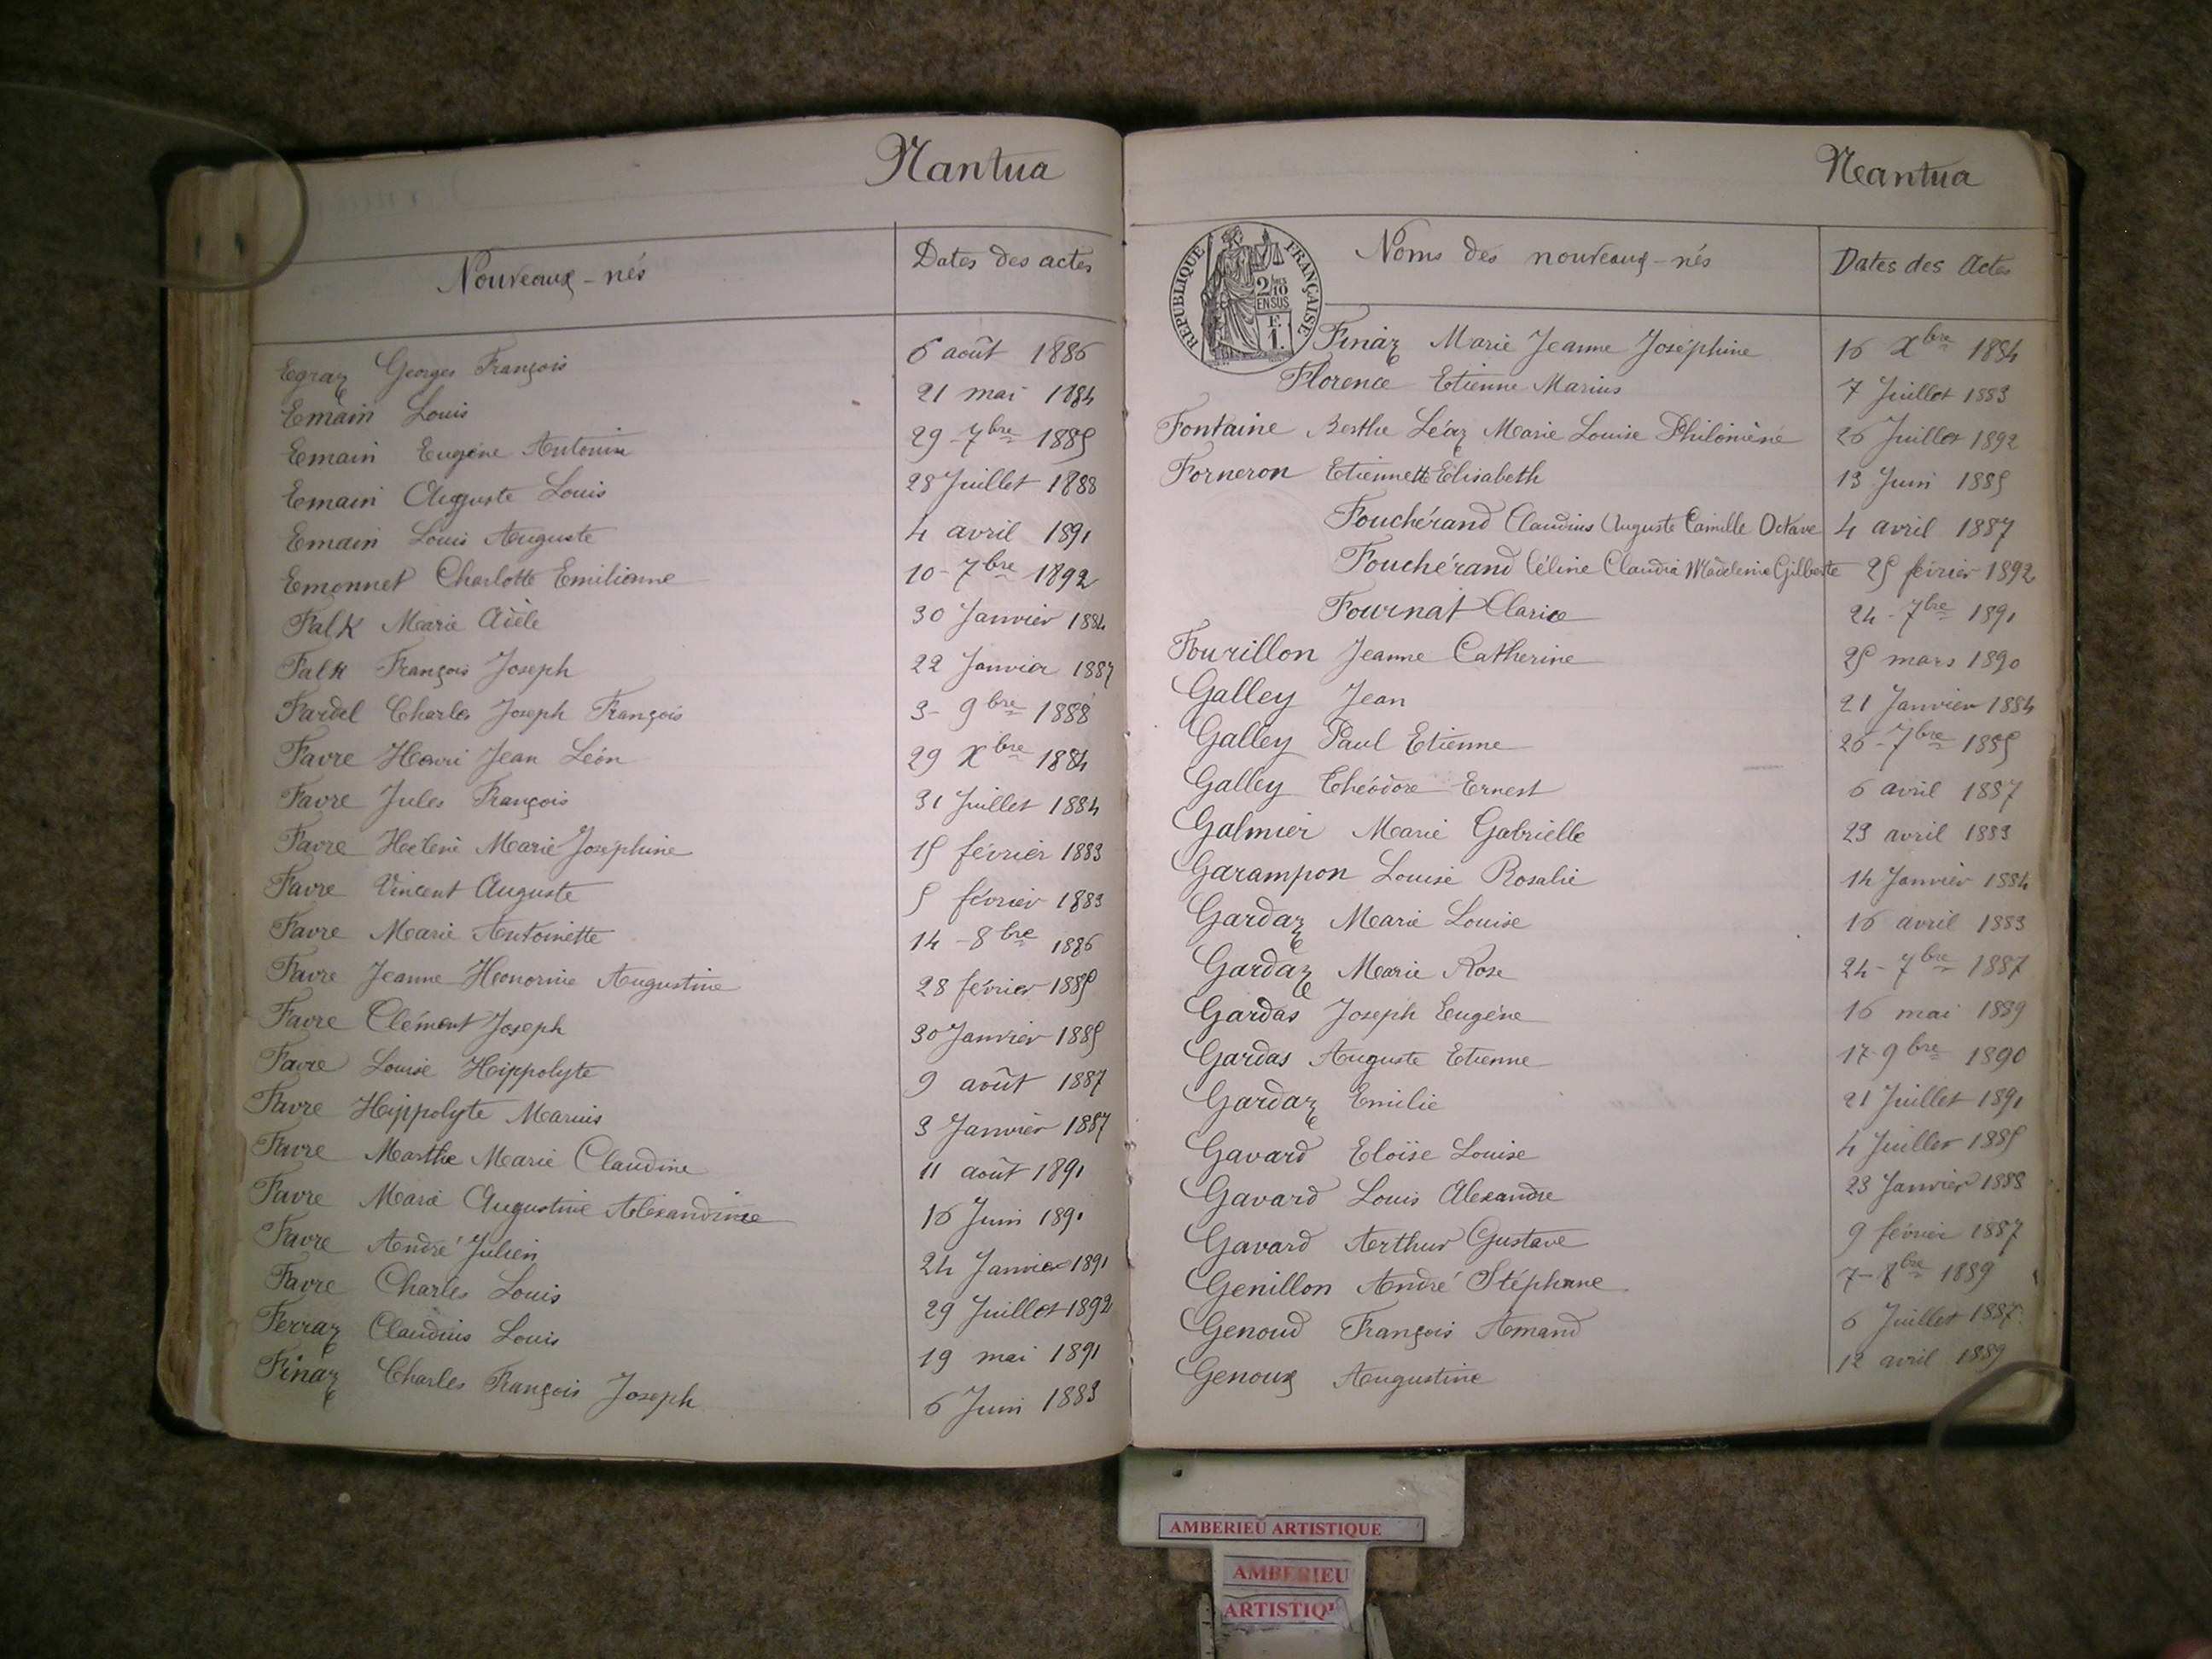 Nantua
Nouveaux-nés Dates des actes
Egraz Georges François 6 août 1886
Emain Louis 21 mai 1884
Emain Eugène Antonin 29 7bre 1885
Emain Auguste Louis 28 Juillet 1888
Emain Louis Auguste 4 avril 1891
Emonnet Charlotte Emilienne 10 - 7bre 1892
Falk Marie Adèle 30 Janvier 1884
Falk François Joseph 22 Janvier 1887
Fardel Charles Joseph François 3 - 9bre 1888
Favre Henri Jean Léon 29 Xbre 1884
Favre Jules François 31 Juillet 1884
Favre Hélène Marie Joséphine 15 février 1883
Favre Vincent Auguste 5 février 1883
Favre Marie Antoinette 14 - 8bre 1886
Favre Jeanne Honorine Augustine 28 février 1885
Favre Clément Joseph 30 Janvier 1885
Favre Louise Hippolyte 9 août 1887
Favre Hippolyte Marius 3 Janvier 1887
Favre Marthe Marie Claudine 11 août 1891
Favre Marie Augustine Alexandrine 16 Juin 1891
Favre André Julien 24 Janvier 1891
Favre Charles Louis 29 Juillet 1892
Ferraz Claudius Louis 19 mai 1891
Finaz Charles François Joseph 6 Juin 1883
Nantua
REPUBLIQUE FRANÇAISE
2/10 EN SUS
F. 1.
Noms des nouveaux-nés Dates des Actes
Finaz Marie Jeanne Joséphine 16 Xbre 1884
Florence Etienne Marius 7 Juillet 1883
Fontaine Berthe Marie Louise Philomène 26 Juillet 1892
Forneron Etiennette Elisabeth 13 Juin 1885
Fouchérand Claudius Auguste Camille Octave 4 avril 1887
Fouchérand Céline Claudia Madeleine Gilberte 25 février 1892
Fournat Clarice 24 - 7bre 1891
Fourillon Jeanne Catherine 25 mars 1890
Galley Jean 21 Janvier 1884
Galley Paul Etienne 26 - 7bre 1885
Galley Théodore Ernest 6 avril 1887
Galmier Marie Gabrielle 23 avril 1883
Garampon Louise Rosalie 14 Janvier 1884
Gardaz Marie Louise 16 avril 1883
Gardaz Marie Rose 24 - 7bre 1887
Gardas Joseph Eugène 16 mai 1889
Gardas Auguste Etienne 17 - 9bre 1890
Gardaz Emilie 21 Juillet 1891
Gavard Eloïse Louise 4 Juillet 1885
Gavard Louis Alexandre 23 Janvier 1883
Gavard Arthur Gustave 9 février 1887
Genillon André Stéphane 7 - bre 1889
Genoud François Armand 6 Juillet 1887
Genoux Augustine 12 avril 1889
AMBERIEU ARTISTIQUE
AMBERIEU
ARTISTIQ